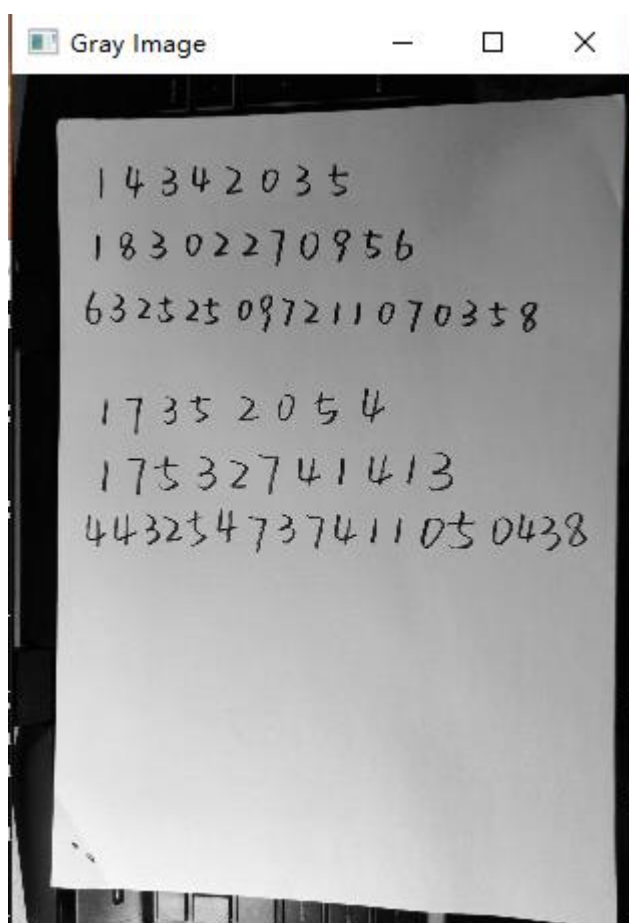 Gray Image
14342035
18302270956
632525097211070358
17352054
17532741413
443254737411050438